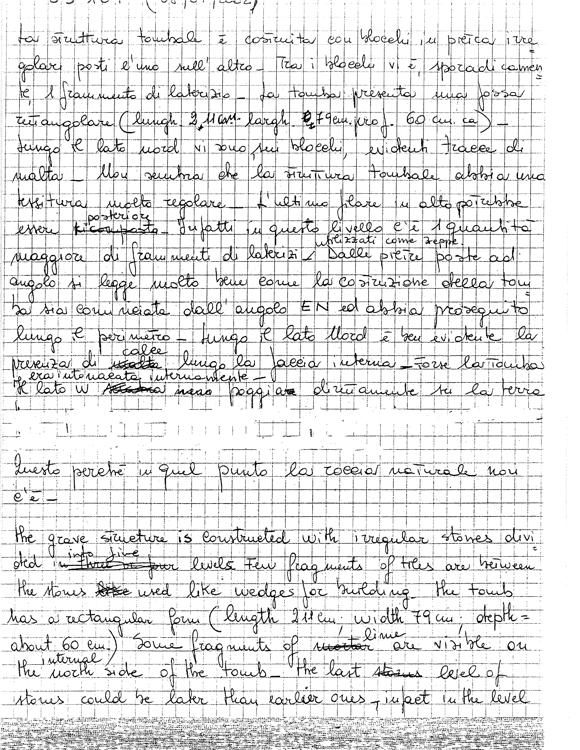 La struttura tombale è costruita con blocchi in pietra irre=
golari posti l'uno sull'altro_ Tra i blocchi vi è, sporadicamen=
te, 1 frammento di laterizio_ La tomba presenta una fossa
rettangolare (lungh. 2,11 cm. largh. 79 cm. prof. 60 cm. ca)_
Lungo il lato nord vi sono, sui blocchi, evidenti tracce di
malta_ Non sembra che la struttura tombale abbia una
tessitura molto regolare_ L'ultimo filare in alto potrebbe
essere posteriore_ Infatti in questo livello c'è 1 quantità
maggiore di frammenti di laterizi utilizzati come zeppe_ Dalle pietre poste ad
angolo si legge molto bene come la costruzione della tom
ba sia cominciata dall'angolo EN ed abbia proseguito
lungo il perimetro_ Lungo il lato Nord è ben evidente la
presenza di calce lungo la faccia interna_ Forse la tomba
era intonacata internamente_
Il lato W poggia direttamente su la terra
Questo perché in quel punto la roccia naturale non
c'è_
The grave structure is constructed with irregular stones divi=
ded into five levels. Few fragments of tiles are between
the stones used like wedges for building. The tomb
has a rectangular form (length 211 cm; width 79 cm; depth=
about 60 cm.) Some fragments of lime are visible on
the internal north side of the tomb_ The last level of
stones could be later than earlier ones, infact in the level